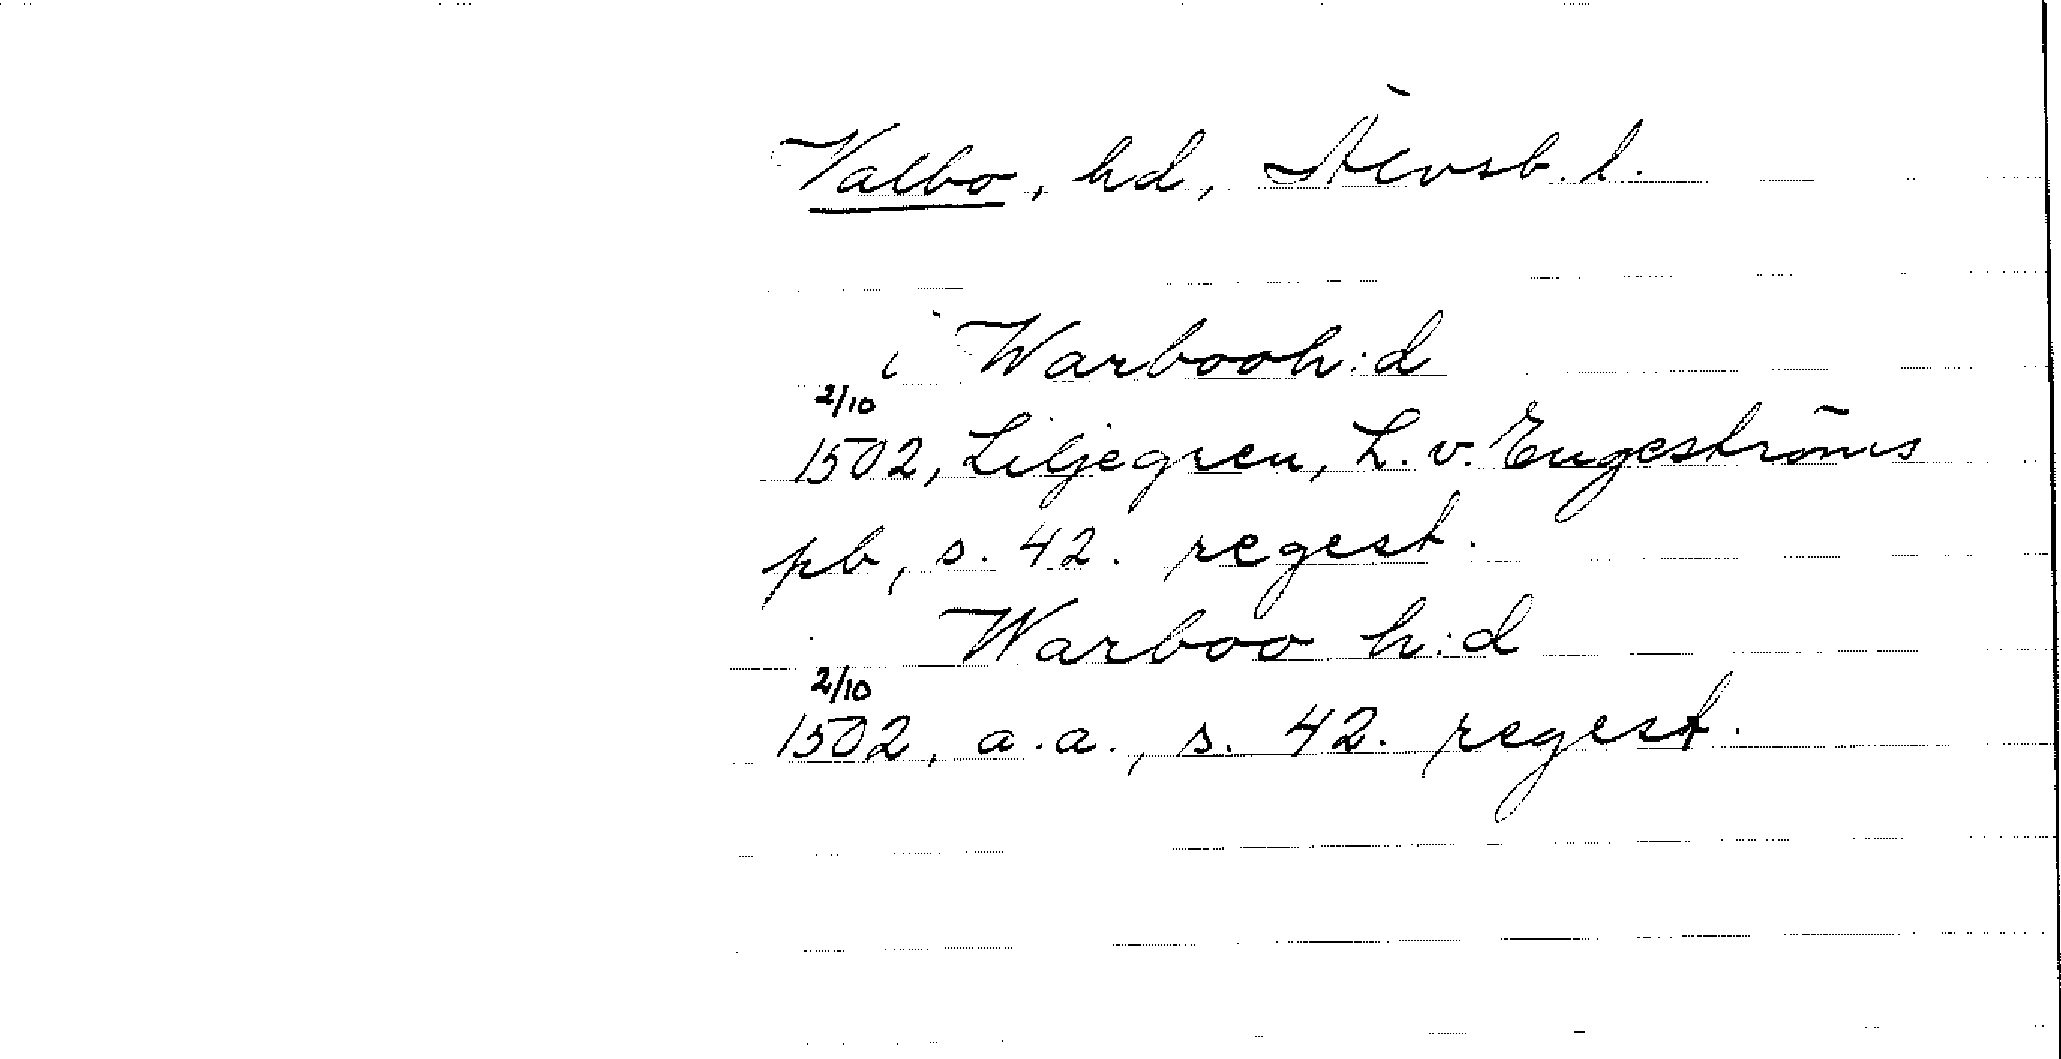 Valbo, hd, Älvsb. l.
i Warbooh:d
2/10
1502, Liljegren, L. v. Engeströms
pb, s. 42. regest.
Warboo h:d
2/10
1502, a.a., s. 42. regest.